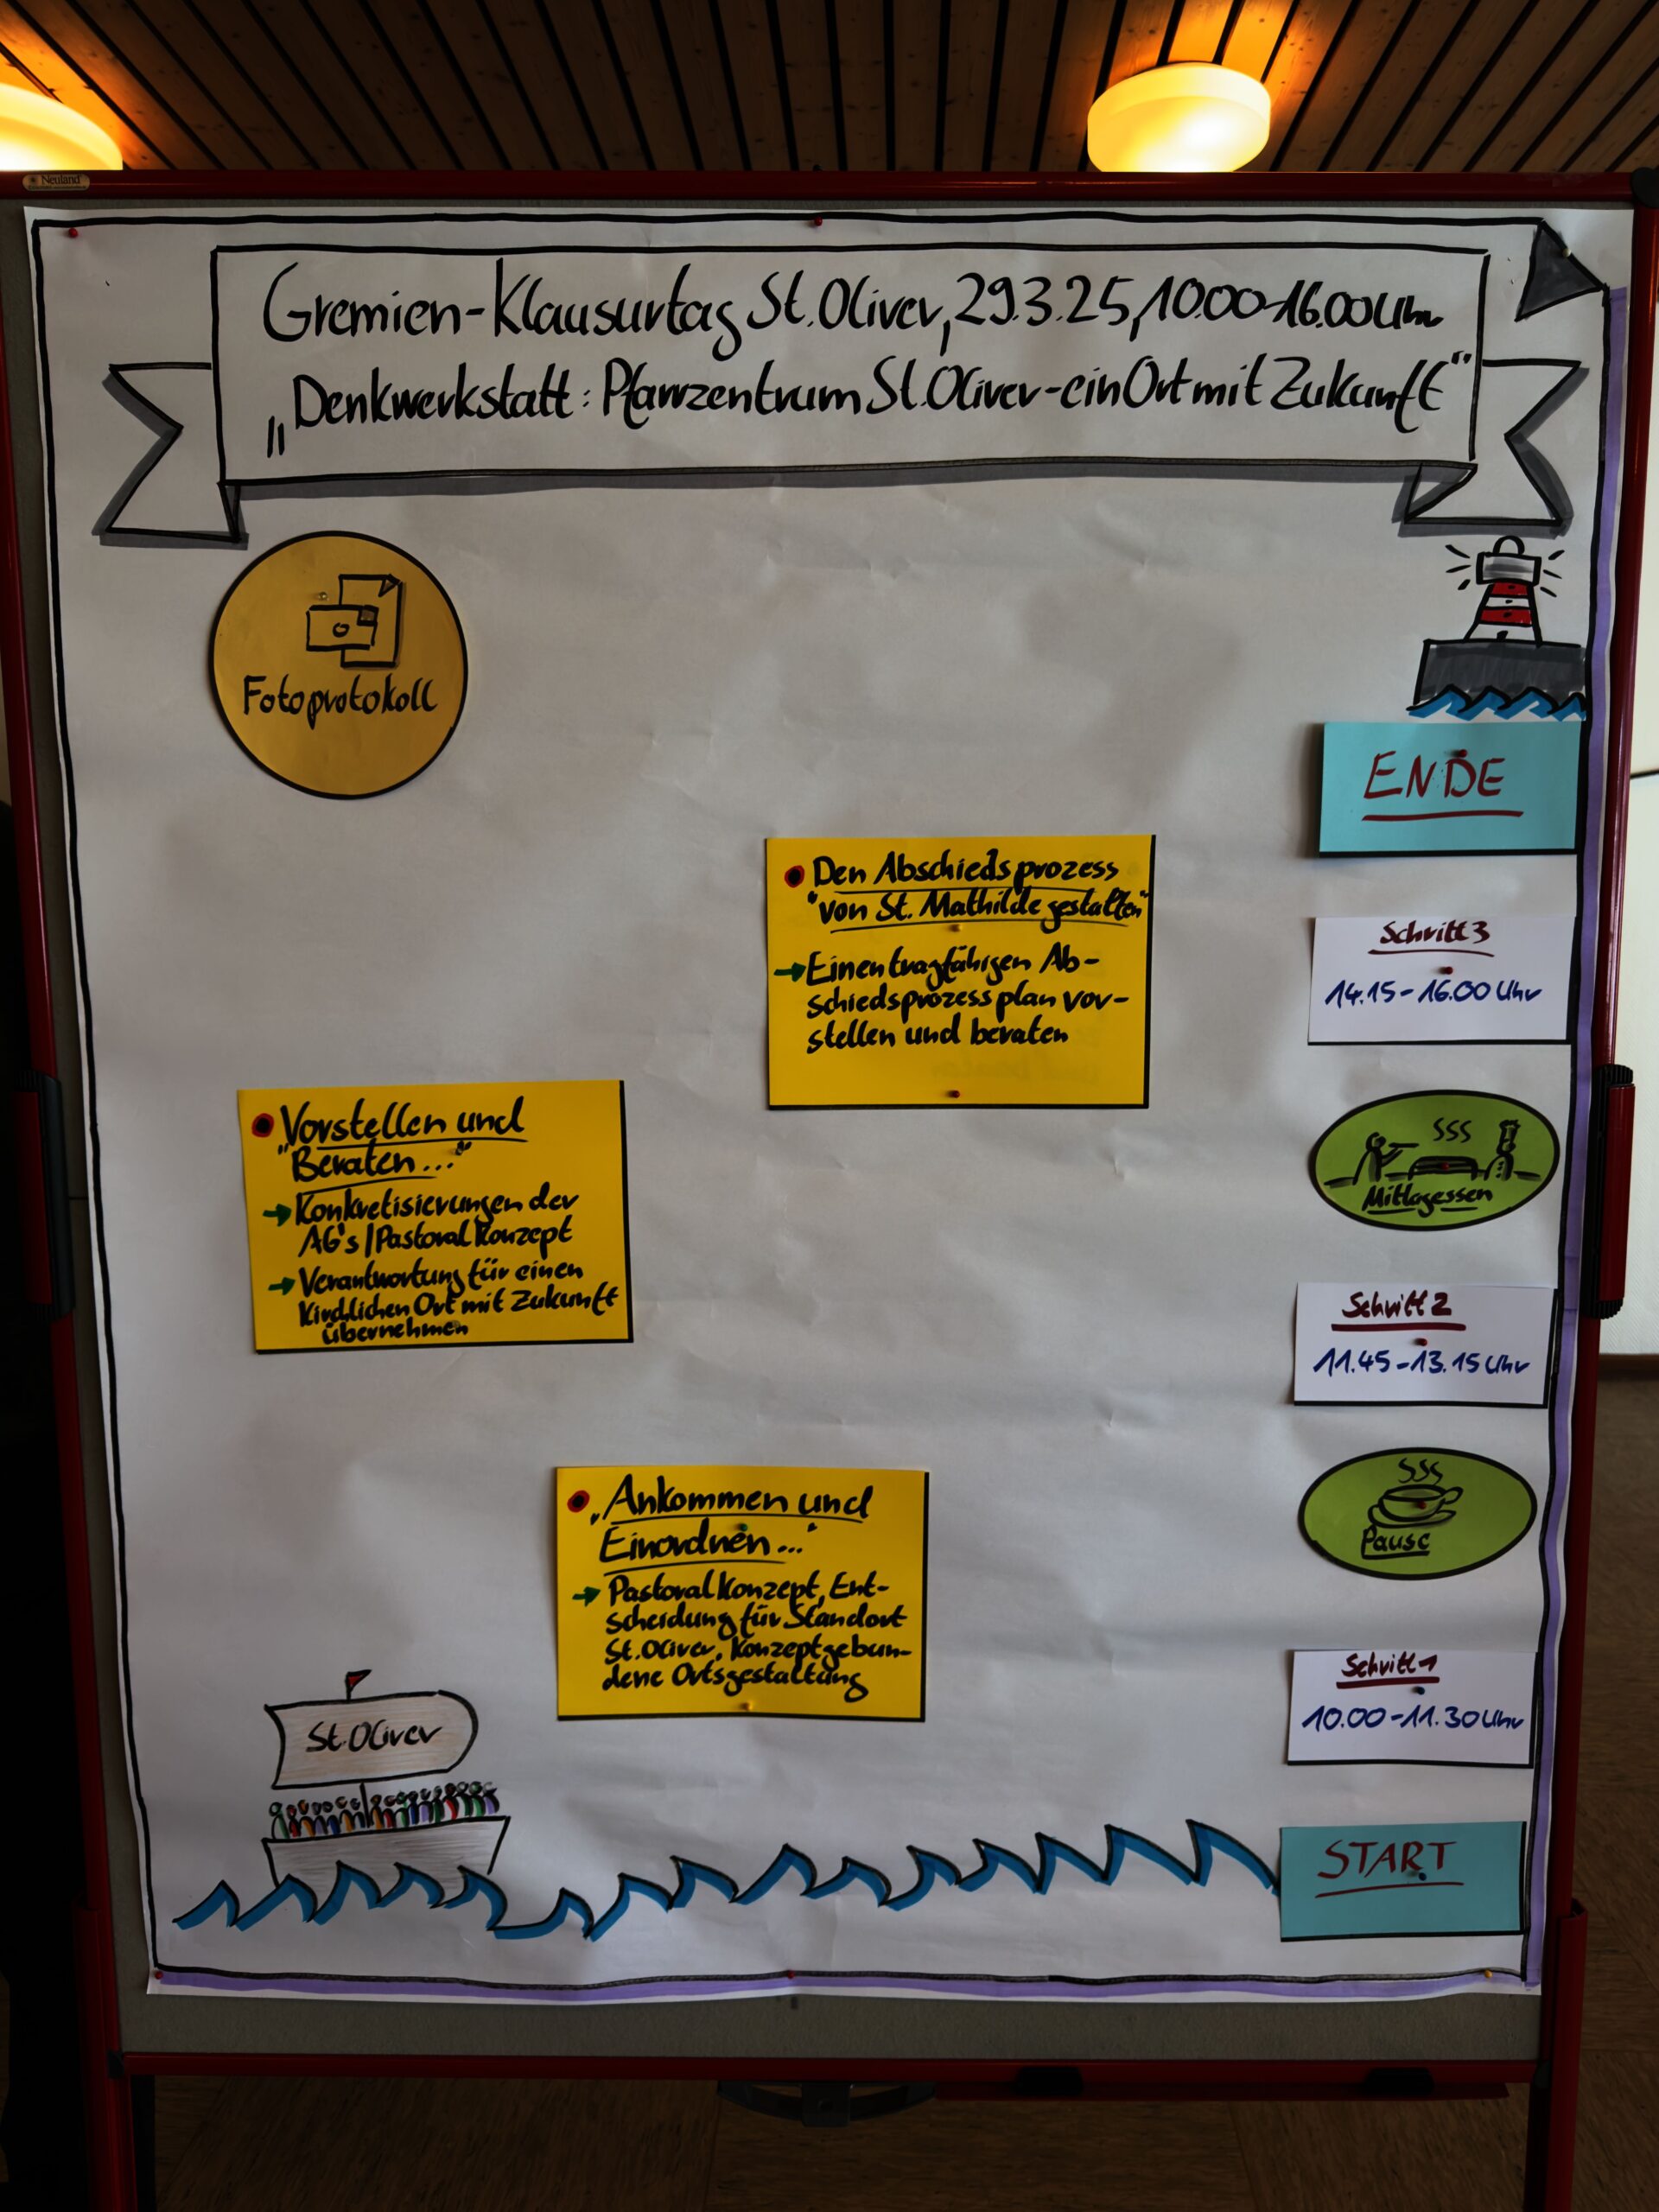 Neuland
Gremien-Klausurtag St. Oliver, 29.3.25, 10.00-16.00 Uhr
„Denkwerkstatt: Pfarrzentrum St. Oliver - ein Ort mit Zukunft“
Fotoprotokoll
ENDE
Den Abschiedsprozess
"von St. Mathilde gestalten"
→ Einen tragfähigen Ab-
schiedsprozessplan vor-
stellen und beraten
Schritt 3
14.15 - 16.00 Uhr
Vorstellen und
"Beraten..."
→ Konkretisierungen der
AG's / Pastoralkonzept
→ Verantwortung für einen
Kirchlichen Ort mit Zukunft
übernehmen
Mittagessen
Schritt 2
11.45 - 13.15 Uhr
„Ankommen und
Einordnen..."
→ Pastoralkonzept, Ent-
scheidung für Standort
St. Oliver, Konzeptgebun-
dene Ortsgestaltung
Pause
Schritt 1
10.00 - 11.30 Uhr
St. Oliver
START